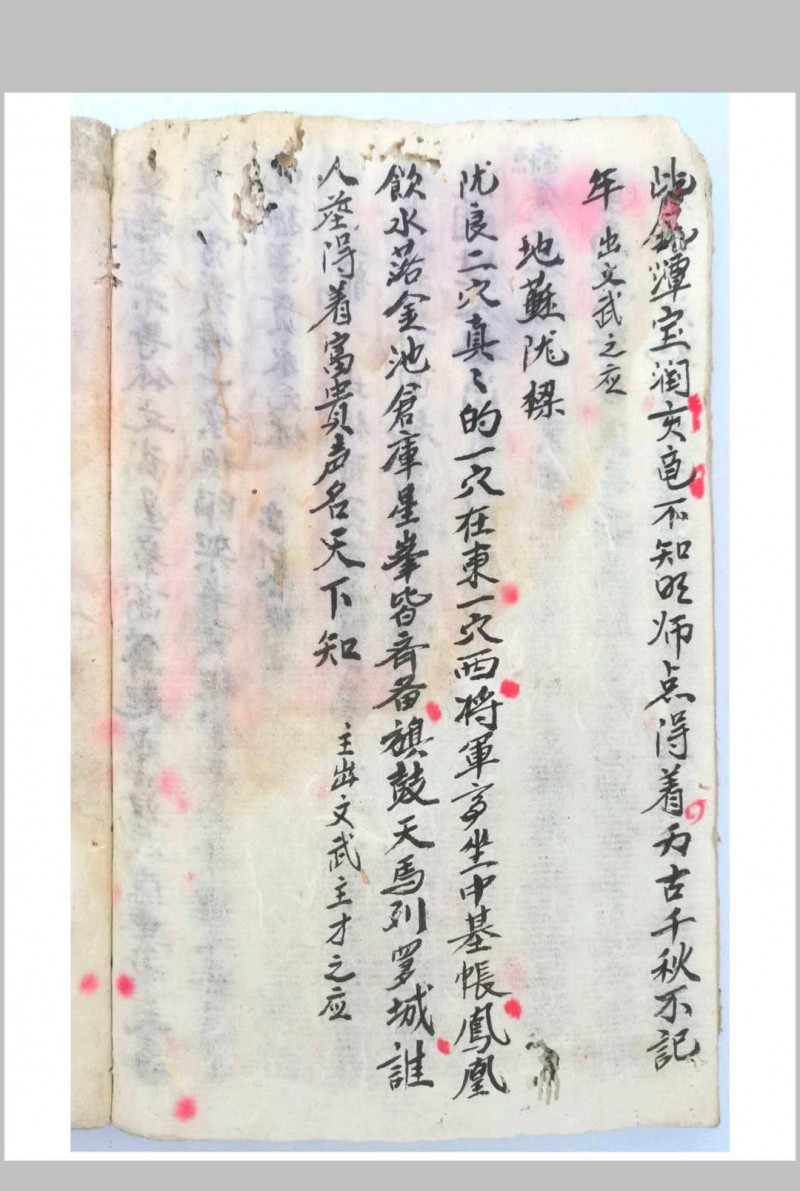 潭宝润亥龟不知明师点得着万古千秋不记
年 出文武之应
地蘇陇樑
陇良二穴真々的一穴在東一穴西将軍高坐中基帳鳳凰
飲水落金池倉庫星峯皆斉备旗鼓天馬列罗城誰
人塟得着富貴声名天下知 主出文武主才之应